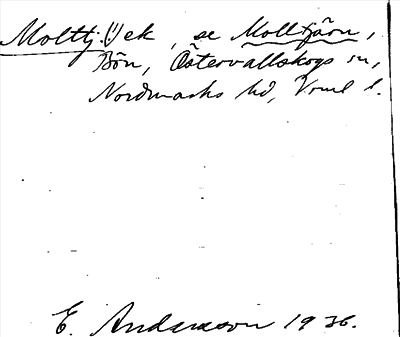 Molttj. ek, se Molltjärn,
Bön, Östervallskogs sn,
Nordmarks hd, Vrml l.
E. Andersson 1936.